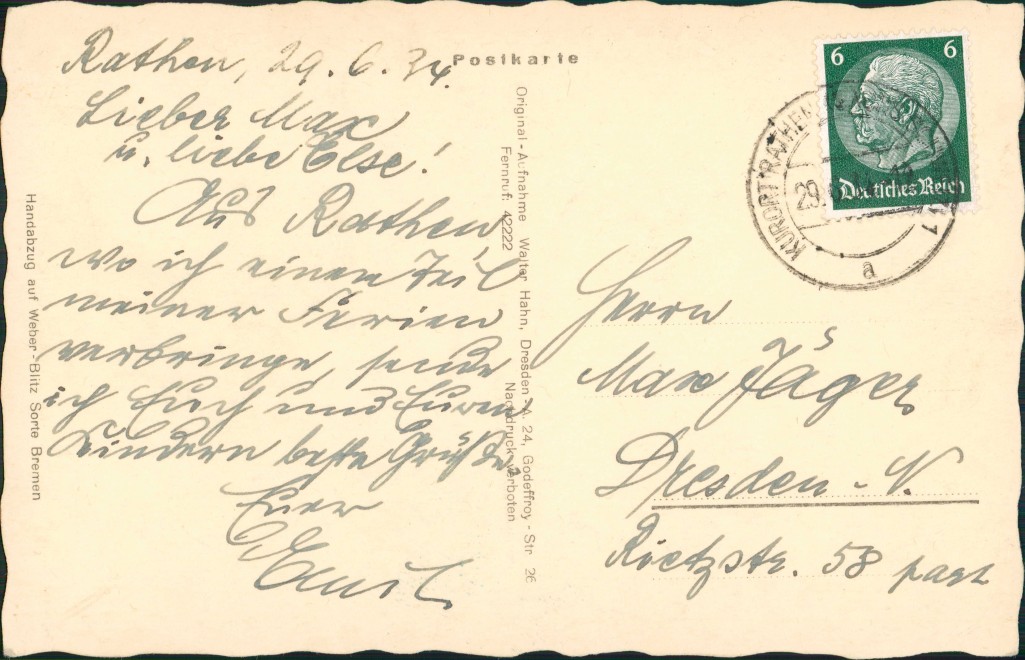 Postkarte
Rathen, 29.6.34.
Lieber Max
u. liebe Else!
Aus Rathen
wo ich einen Teil
meiner Ferien
verbringe, sende
ich Euch und Euren
Kindern beste Grüße
Euer
Emil
Original-Aufnahme Walter Hahn, Dresden-A. 24, Godeffroy-Str 26
Fernruf: 42222 Nachdruck verboten
Handabzug auf Weber-Blitz Sorte Bremen
6 6
Deutsches Reich
KURORT RATHEN
29.
a
Herrn
Max Jäger
Dresden-N.
Rietzstr. 58 part